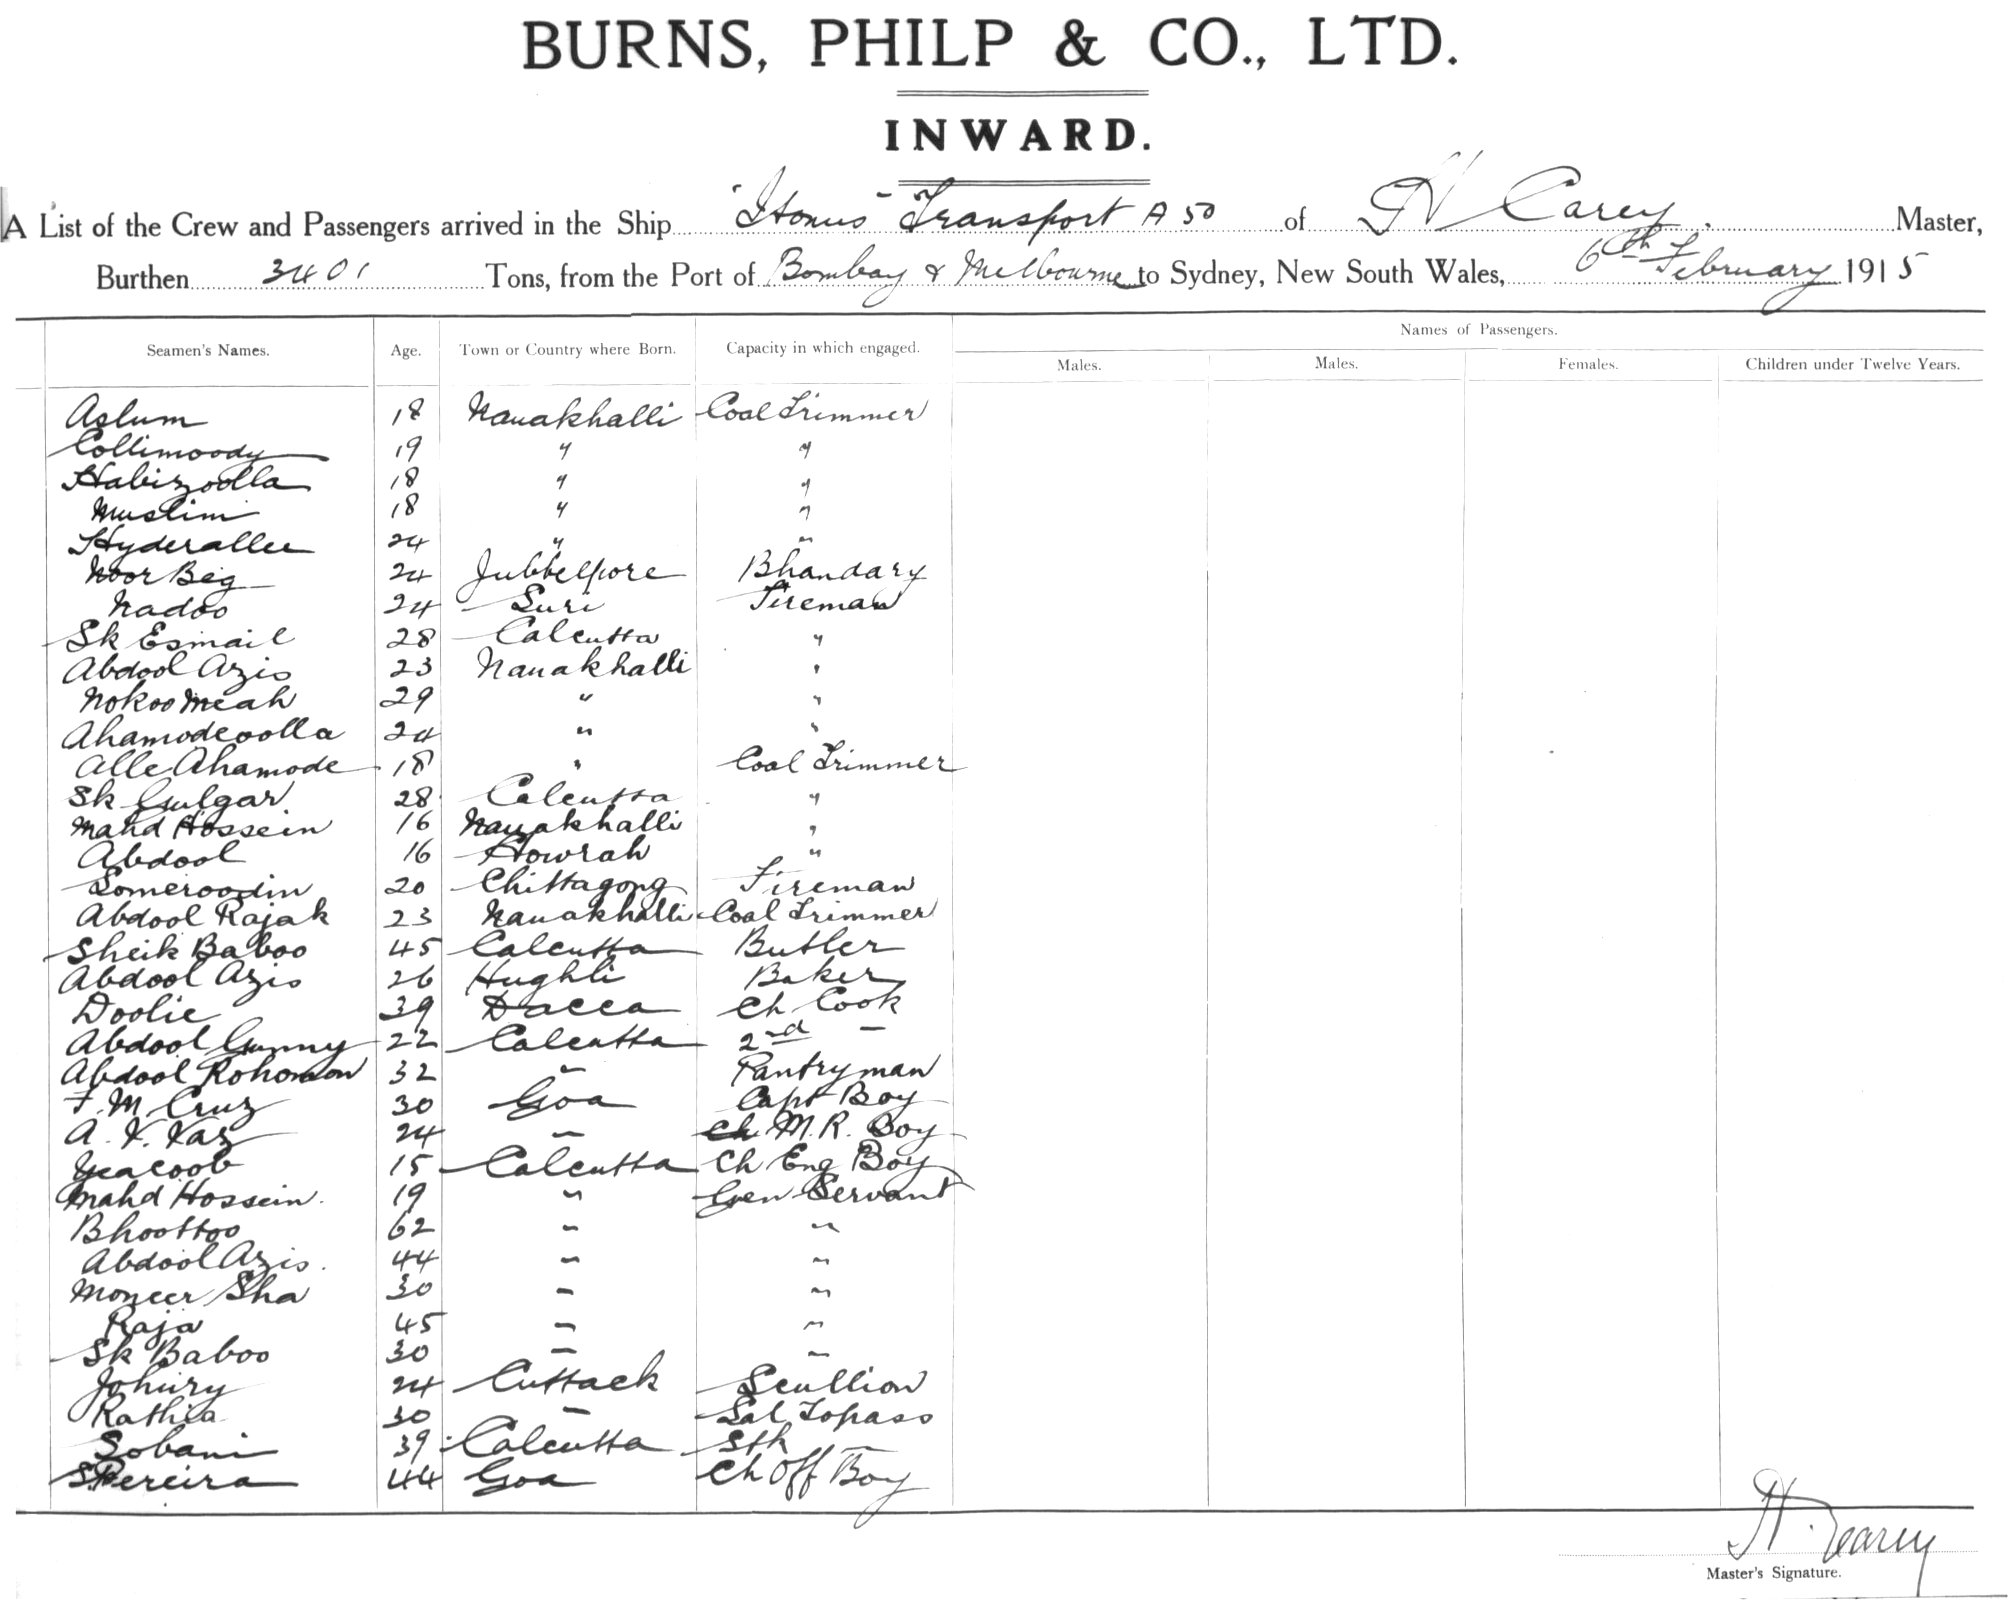 BURNS, PHILP & CO., LTD.
INWARD.
A List of the Crew and Passengers arrived in the Ship "Itonus" Transport A 50 of H Carey. Master,
Burthen 3401 Tons, from the Port of Bombay & Melbourne to Sydney, New South Wales, 6th February 1915
Names of Passengers.
Seamen's Names. Age. Town or Country where Born. Capacity in which engaged. Males. Males. Females. Children under Twelve Years.
Aslum 18 Nauakhalli Coal Trimmer
Collimoody 19 " "
Habizoolla 18 " "
Muslim 18 " "
Hyderallee 24 " "
Noor Beg 24 Jubbelpore Bhandary
Nadoo 24 Suri Fireman
Sk Esmail 28 Calcutta "
Abdool Azis 23 Nauakhalli "
Nokoo Meah 29 " "
Ahamodeoolla 24 " "
Alle Ahamode 18 " Coal Trimmer
Sk Gulgar 28 Calcutta "
Mahd Hossein 16 Nauakhalli "
Abdool 16 Howrah "
Someroodin 20 Chittagong Fireman
Abdool Rajak 23 Nauakhalli Coal Trimmer
Sheik Baboo 45 Calcutta Butler
Abdool Azis 26 Hughli Baker
Doolie 39 Dacca Ch Cook
Abdool Gunny 22 Calcutta 2nd "
Abdool Rohomon 32 " Pantryman
F. M. Cruz 30 Goa Capt Boy
A. X. Vaz 24 " M.R. Boy
Yeacoob 15 Calcutta Ch Eng Boy
Mahd Hossein. 19 " Gen Servant
Bhoottoo 62 " "
Abdool Azis. 44 " "
Moneer Sha 30 " "
Raja 45 " "
Sk Baboo 30 " "
Johury 24 Cuttack Scullion
Rathia 30 " Sal Topass
Sobani 39 Calcutta Sth "
S Pereira 44 Goa Ch Off Boy
H. Carey
Master's Signature.